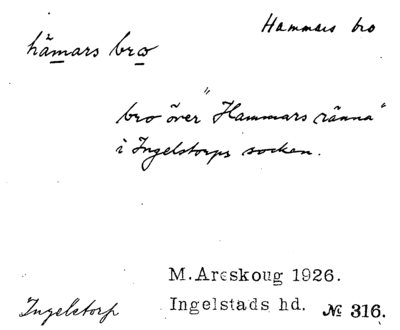 Hammars bro
hämars bro
bro över "Hammars ränna"
i Ingelstorps socken.
M. Areskoug 1926.
Ingelstorp
Ingelstads hd. № 316.